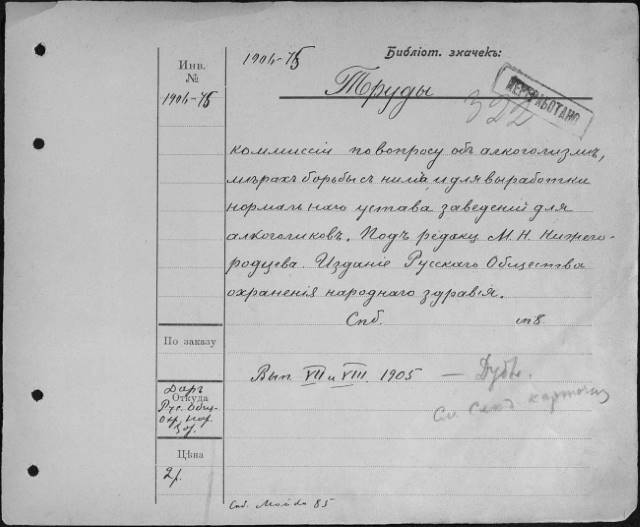 Библіот. значекъ:
Инв.
№
1904-75
1904-75
Труды
322
ПЕРЕРАБОТАНО
коммиссіи по вопросу объ алкоголизмѣ,
мѣрахъ борьбы съ нимъ и для выработки
нормальнаго устава заведеній для
алкоголиковъ. Подъ редакц М. Н. Нижего-
родцева. Изданіе Русскаго Общества
охраненія народнаго здравія.
Спб. in 8.
По заказу
Вып VII и VIII. 1905 — Дубл.
См карточку
Даръ
Откуда
Рус. Общ.
охр. нар.
зд.
Цѣна
2 р.
Спб. 85